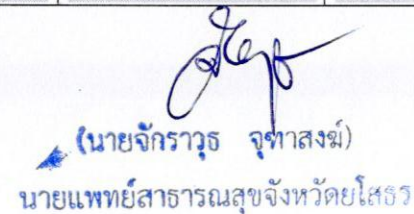 (นายจักราวุธ จุฑาสงฆ์)
นายแพทย์สาธารณสุขจังหวัดยโสธร